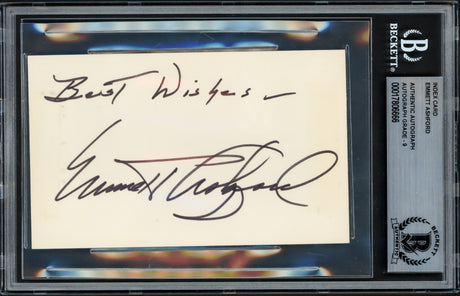 Best Wishes
Emmett Ashford
BECKETT
INDEX CARD
EMMETT ASHFORD
AUTHENTIC AUTOGRAPH
AUTOGRAPH GRADE - 9
00017606666
BECKETT
AUTHENTIC